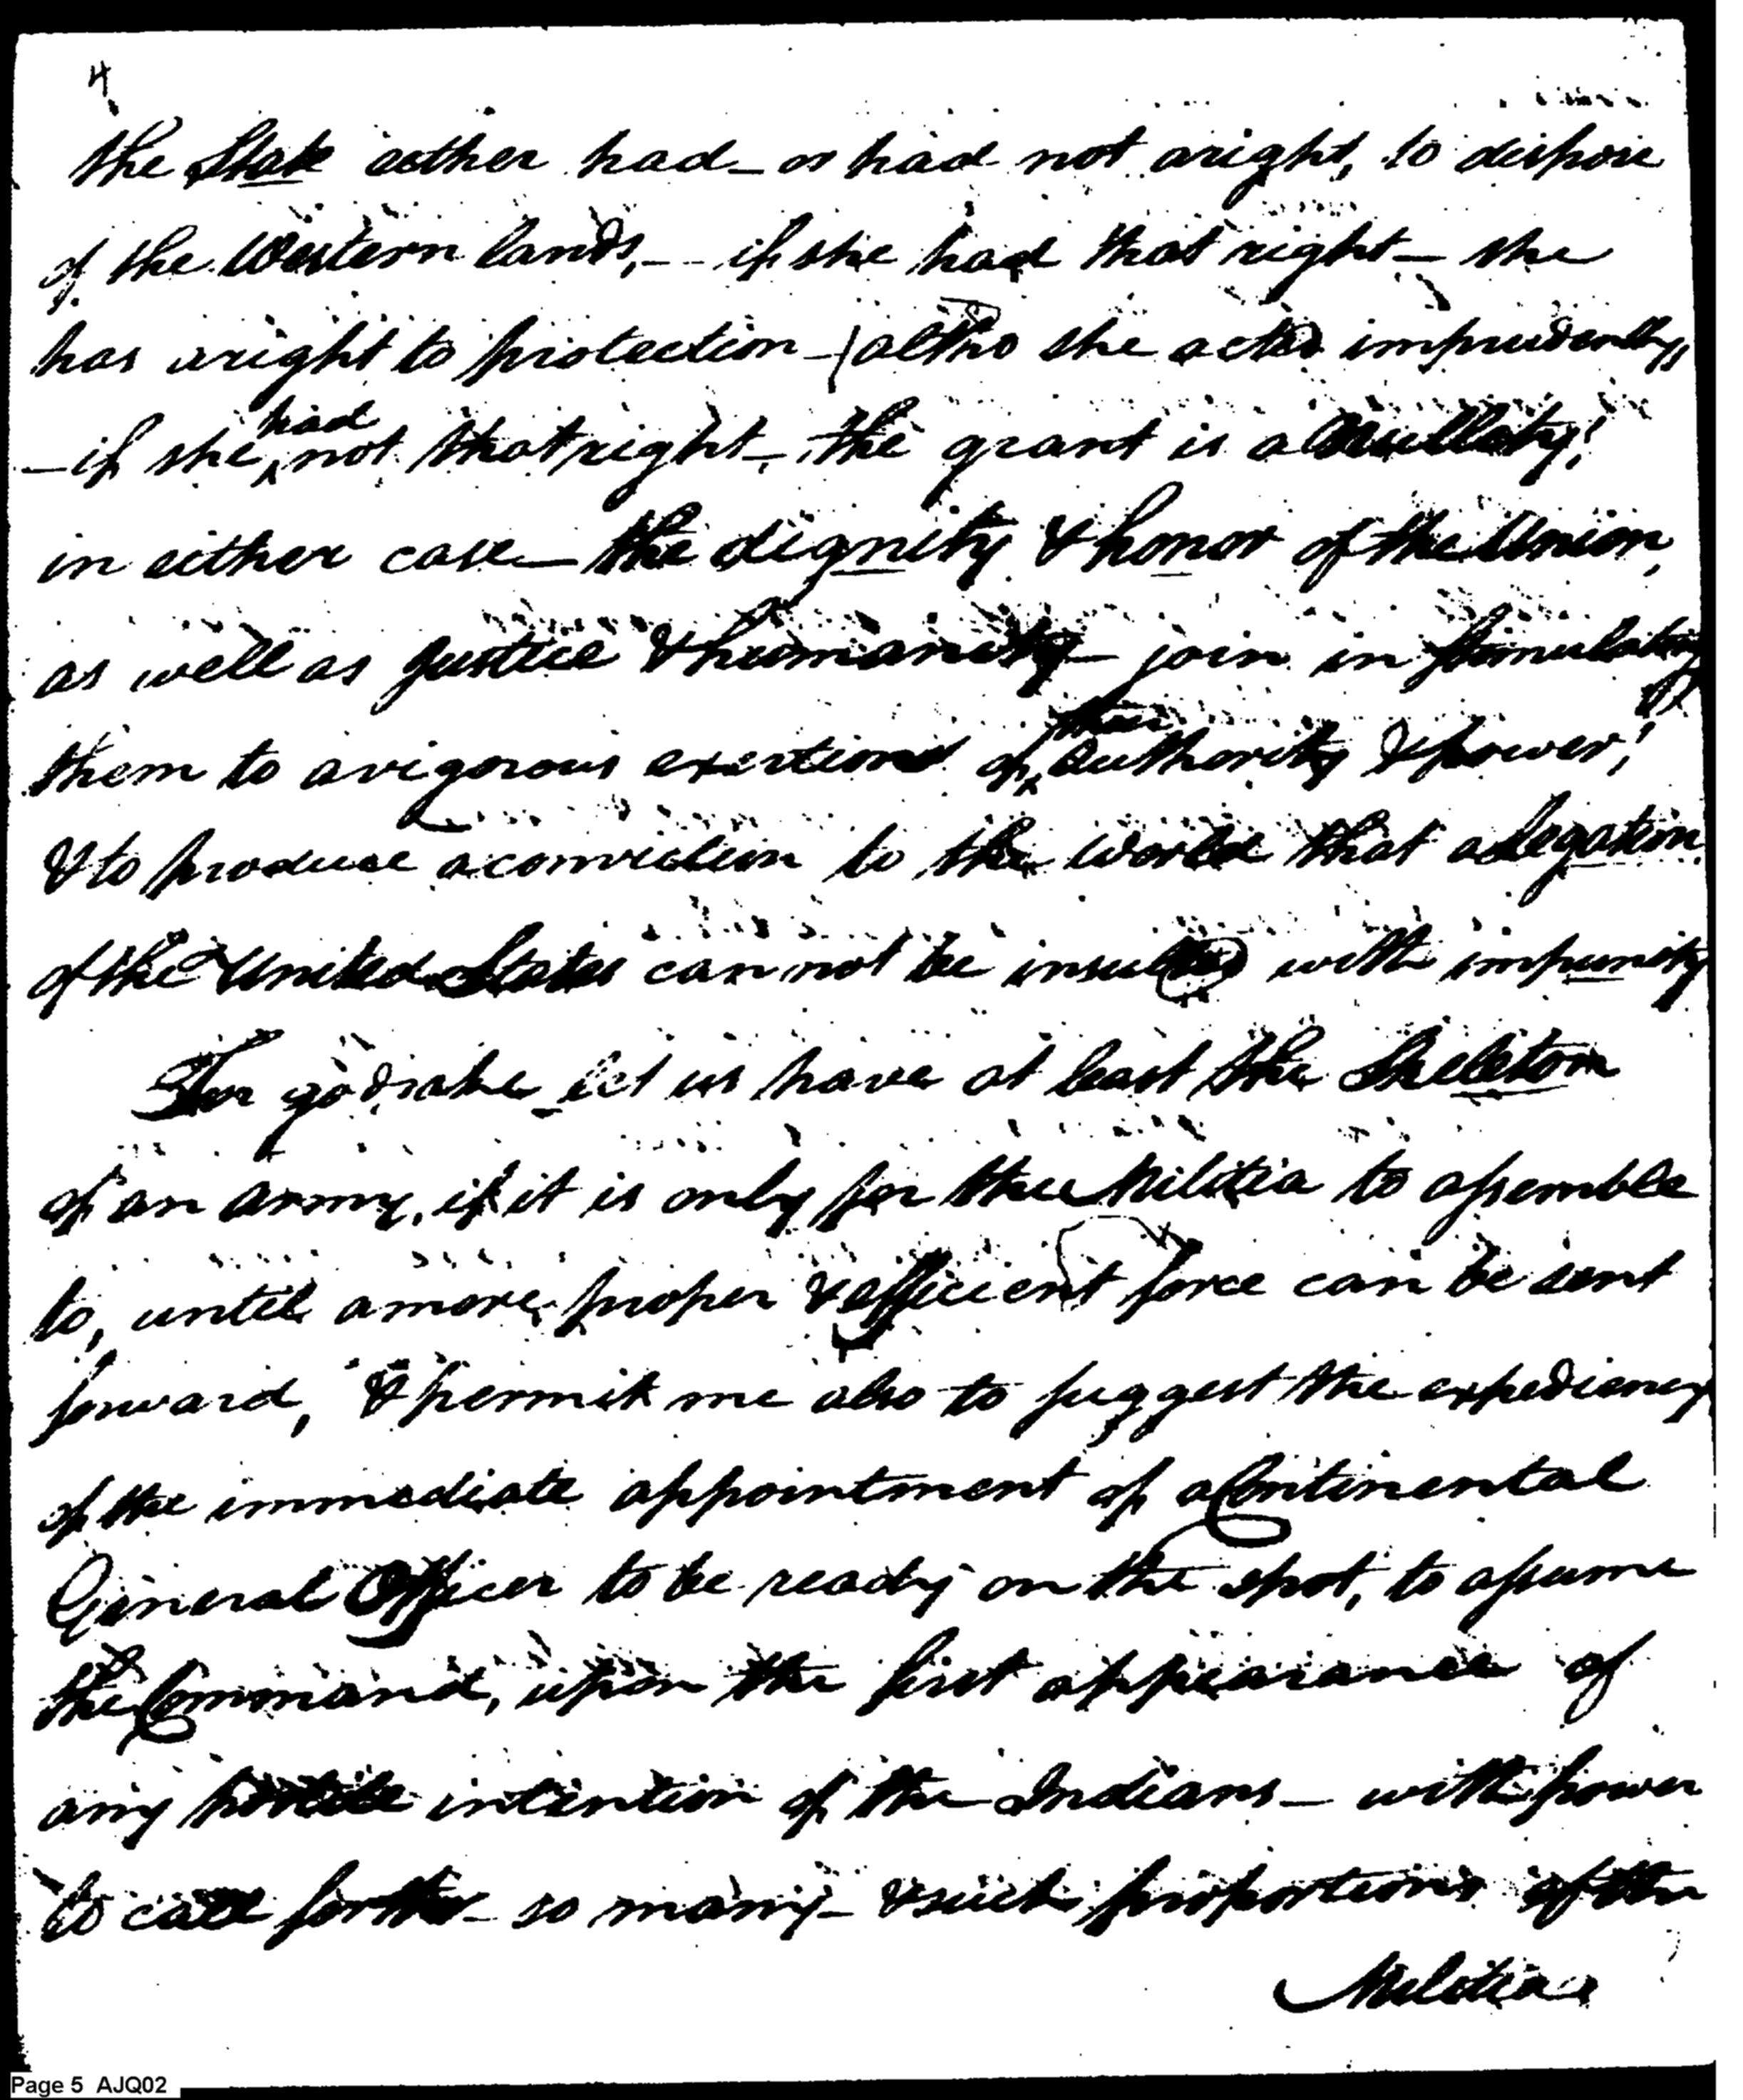 4
the State either had – or had not aright, to dispose
of the Western lands, – – if she had that right – she
has aright to protection – (altho she acted imprudently,
– if she had not that right – the grant is a Nullity!
in either case – the dignity & honor of the Union,
as well as Justice & humanity – join in stimulating
them to avigorous exertion of their authority & power!
& to produce a conviction to the World that a Legation
of the United States can not be insulted with impunity
For god sake let us have at least the Skeleton
of an army, if it is only for the Militia to assemble
to, until a more proper & efficient force can be sent
forward, & permit me also to suggest the expediency
of the immediate appointment of a Continental
General Officer to be ready on the spot, to assume
the Command, upon the first appearance of
any hostile intention of the Indians – with power
to call forth – so many – & such proportions of the
Militia
Page 5 AJQ02